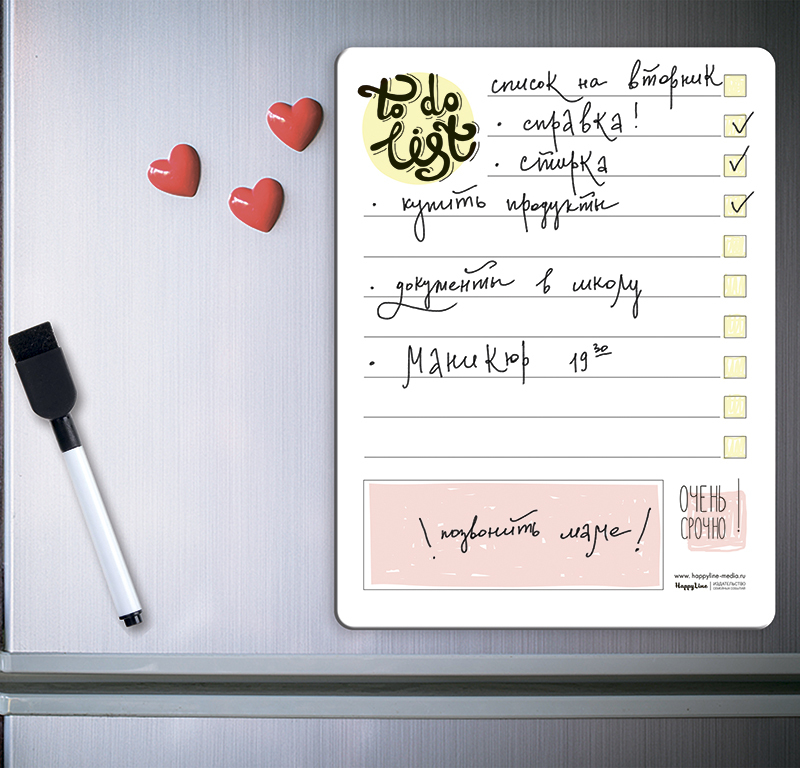 to do
list
список на вторник
• справка!
• стирка
• купить продукты
• документы в школу
• Маникюр 19 30
! позвонить маме!
ОЧЕНЬ
СРОЧНО !
www. happyline-media.ru
HappyLine | ИЗДАТЕЛЬСТВО
СЕМЕЙНЫХ СОБЫТИЙ